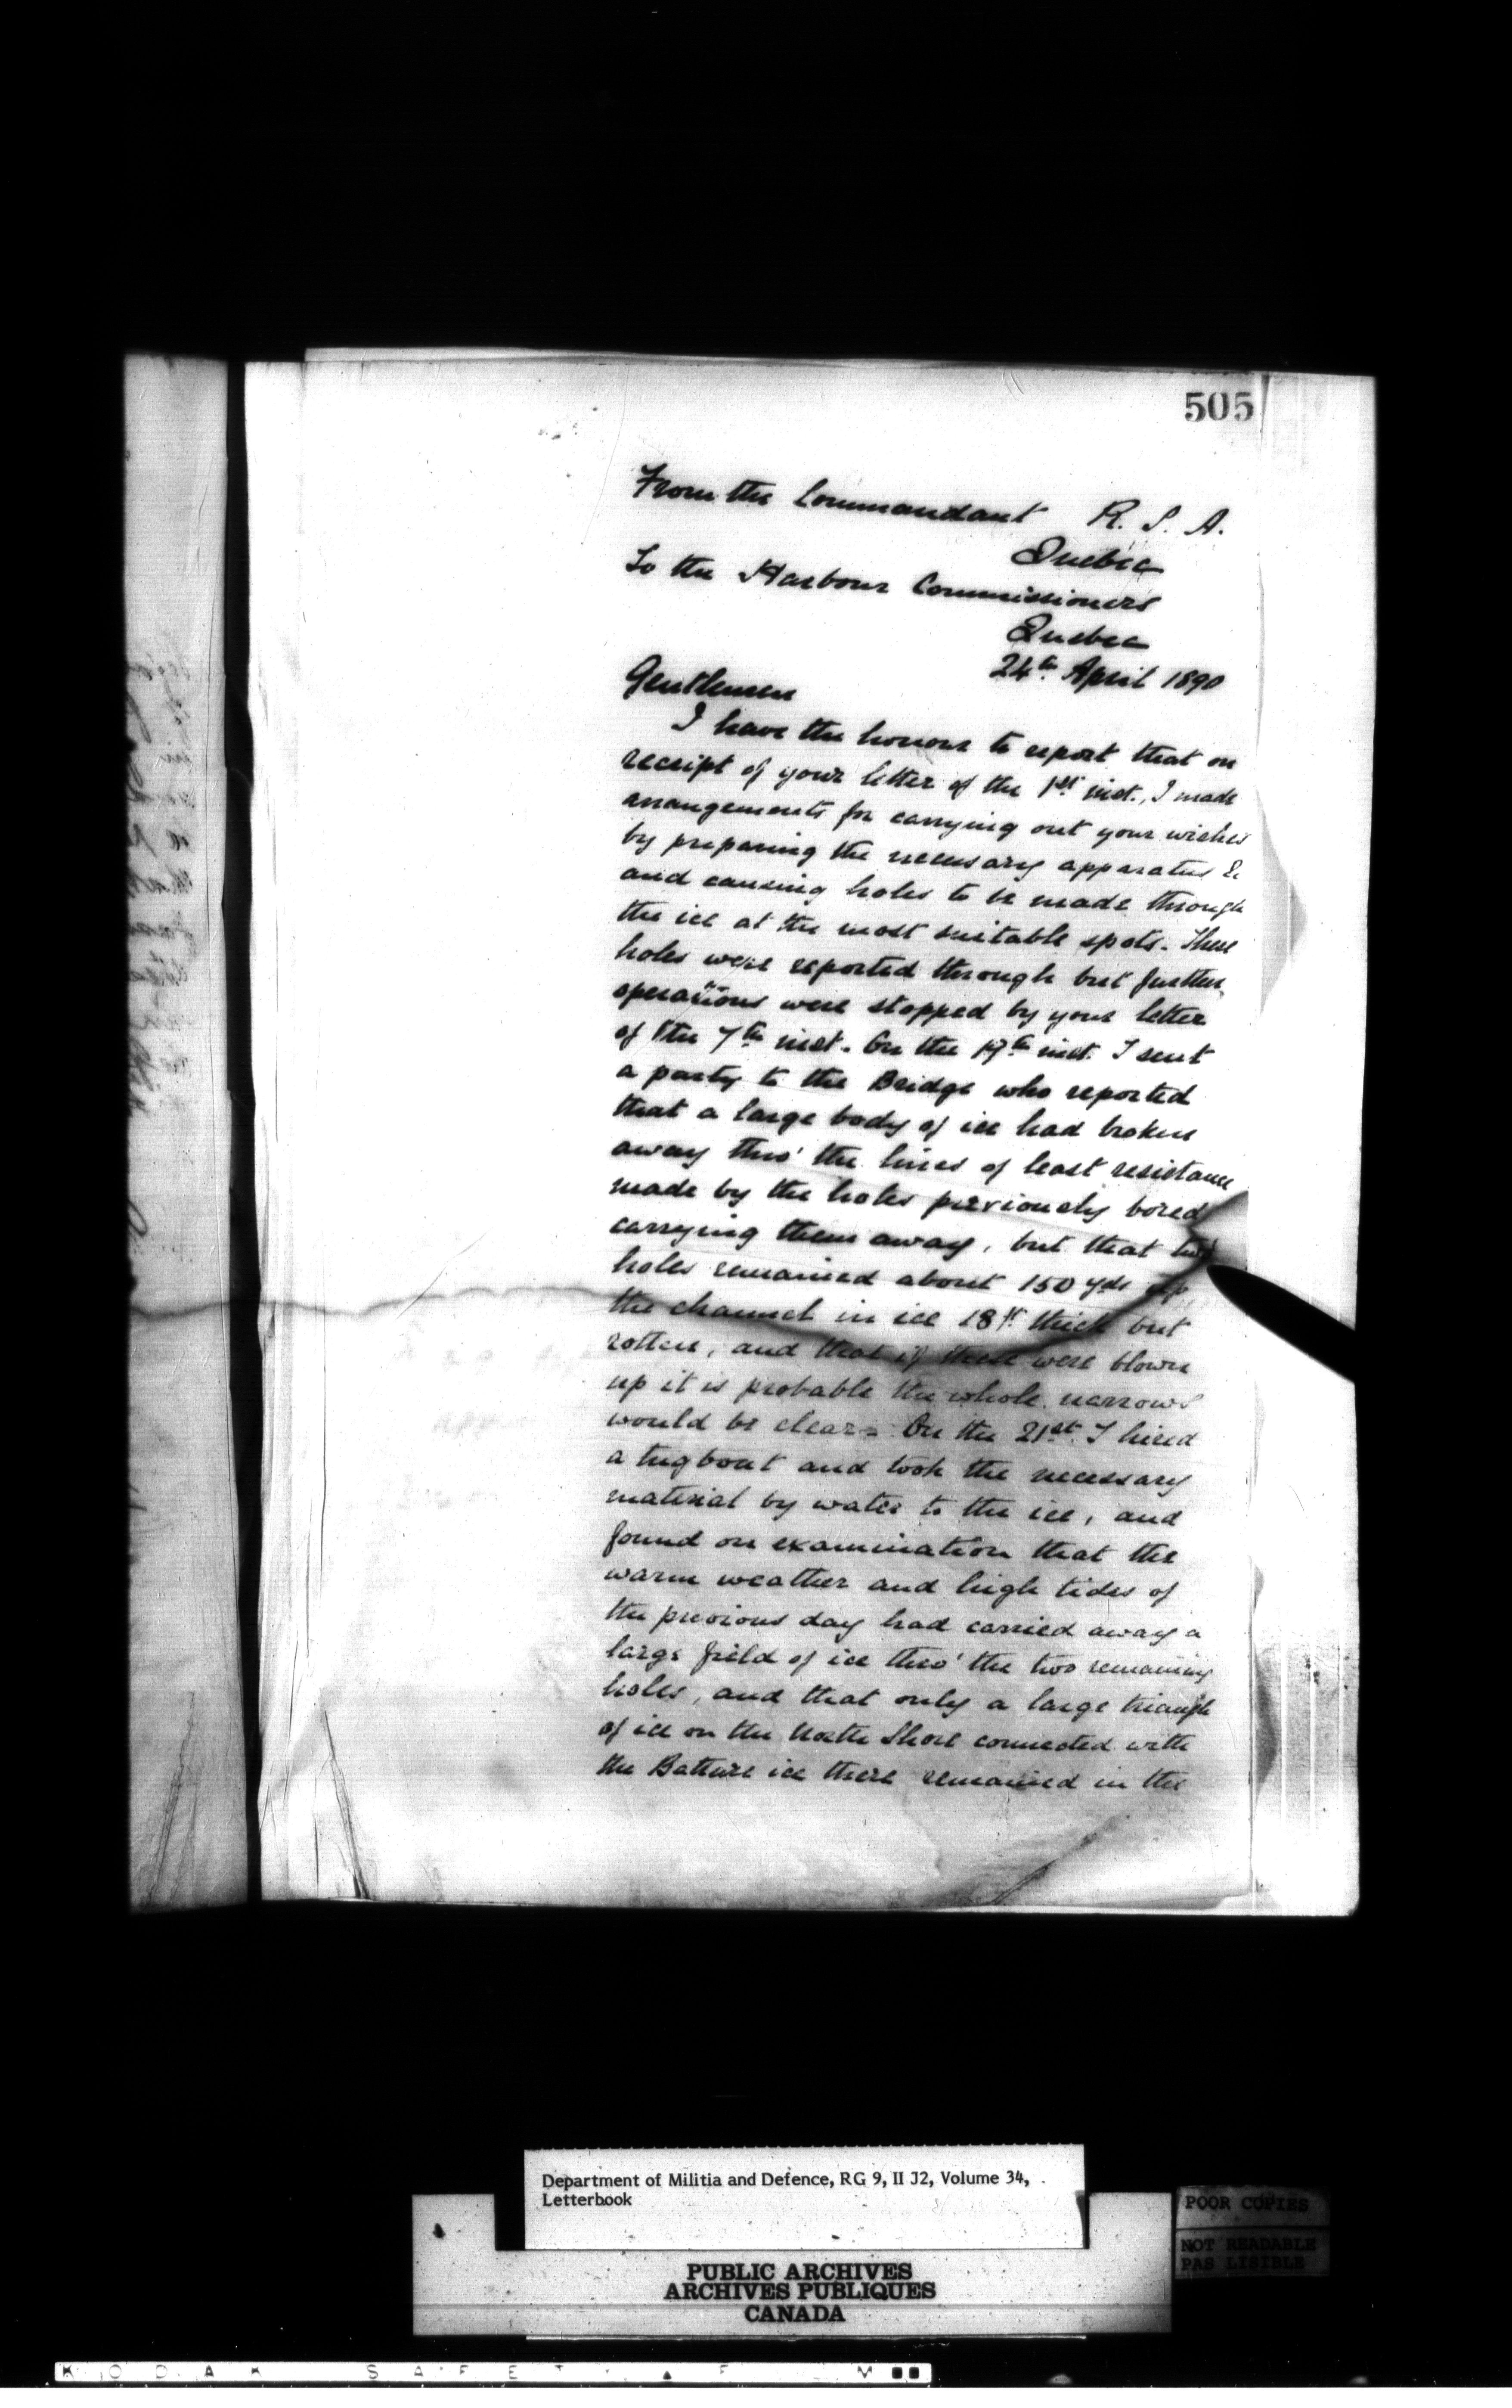 505
From the Commandant R. S. A.
Quebec
To the Harbour Commissioners
Quebec
24th April 1890
Gentlemen
I have the honour to report that on
receipt of your letter of the 1st inst., I made
arrangements for carrying out your wishes
by preparing the necessary apparatus &c
and causing holes to be made through
the ice at the most suitable spots. These
holes were reported through but further
operations were stopped by your letter
of the 7th inst. On the 19th inst. I sent
a party to the Bridge who reported
that a large body of ice had broken
away thro' the lines of least resistance
made by the holes previously bored
carrying them away, but that two
holes remained about 150 yds up
the channel in ice 18" thick but
rotten, and that if these were blown
up it is probable the whole narrows
would be clear. On the 21st I hired
a tugboat and took the necessary
material by water to the ice, and
found on examination that the
warm weather and high tides of
the previous day had carried away a
large field of ice thro' the two remaining
holes, and that only a large triangle
of ice on the North Shore connected with
the Batture ice there remained in the
Department of Militia and Defence, RG 9, II J2, Volume 34,
Letterbook
POOR COPIES
NOT READABLE
PAS LISIBLE
PUBLIC ARCHIVES
ARCHIVES PUBLIQUES
CANADA
KODAK SAFETY